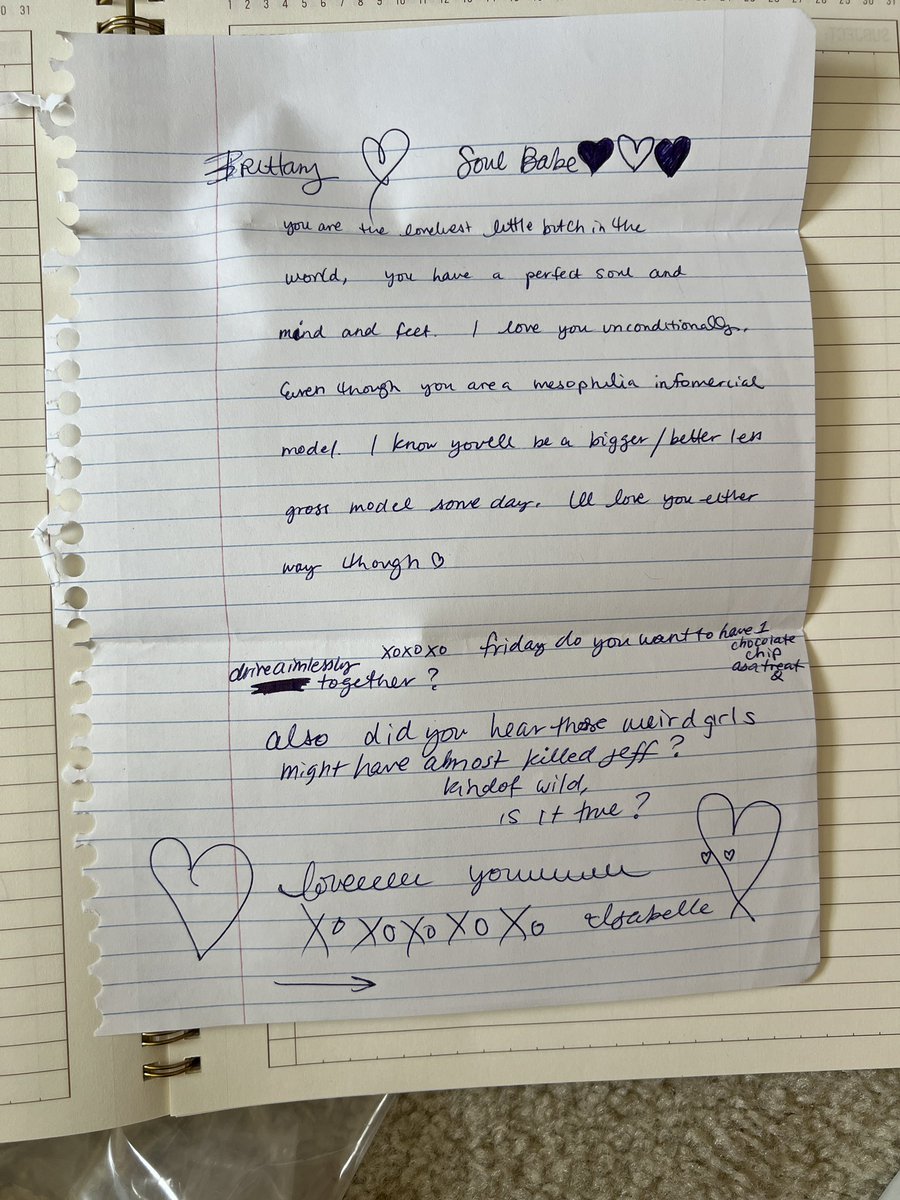 30 31
1 2 3 4 5 6 7 8 9 10 11 12 13 14 15 16 17 18 19 20 21 22 23 24 25 26 27 28 29 30 31
SUBJECT
Brittany Soul Babe
you are the loveliest little bitch in the
world, you have a perfect soul and
mind and feet. I love you unconditionally.
Even though you are a mesophilia infomercial
model. I know you'll be a bigger/better less
gross model some day. I'll love you either
way though
xoxoxo friday do you want to have 1
chocolate
chip
as a treat
&
drive aimlessly
together?
also did you hear those weird girls
might have almost killed Jeff?
kind of wild,
is it true?
loveeeeee youuuuuuu
XO XO XO XO XO Isabelle